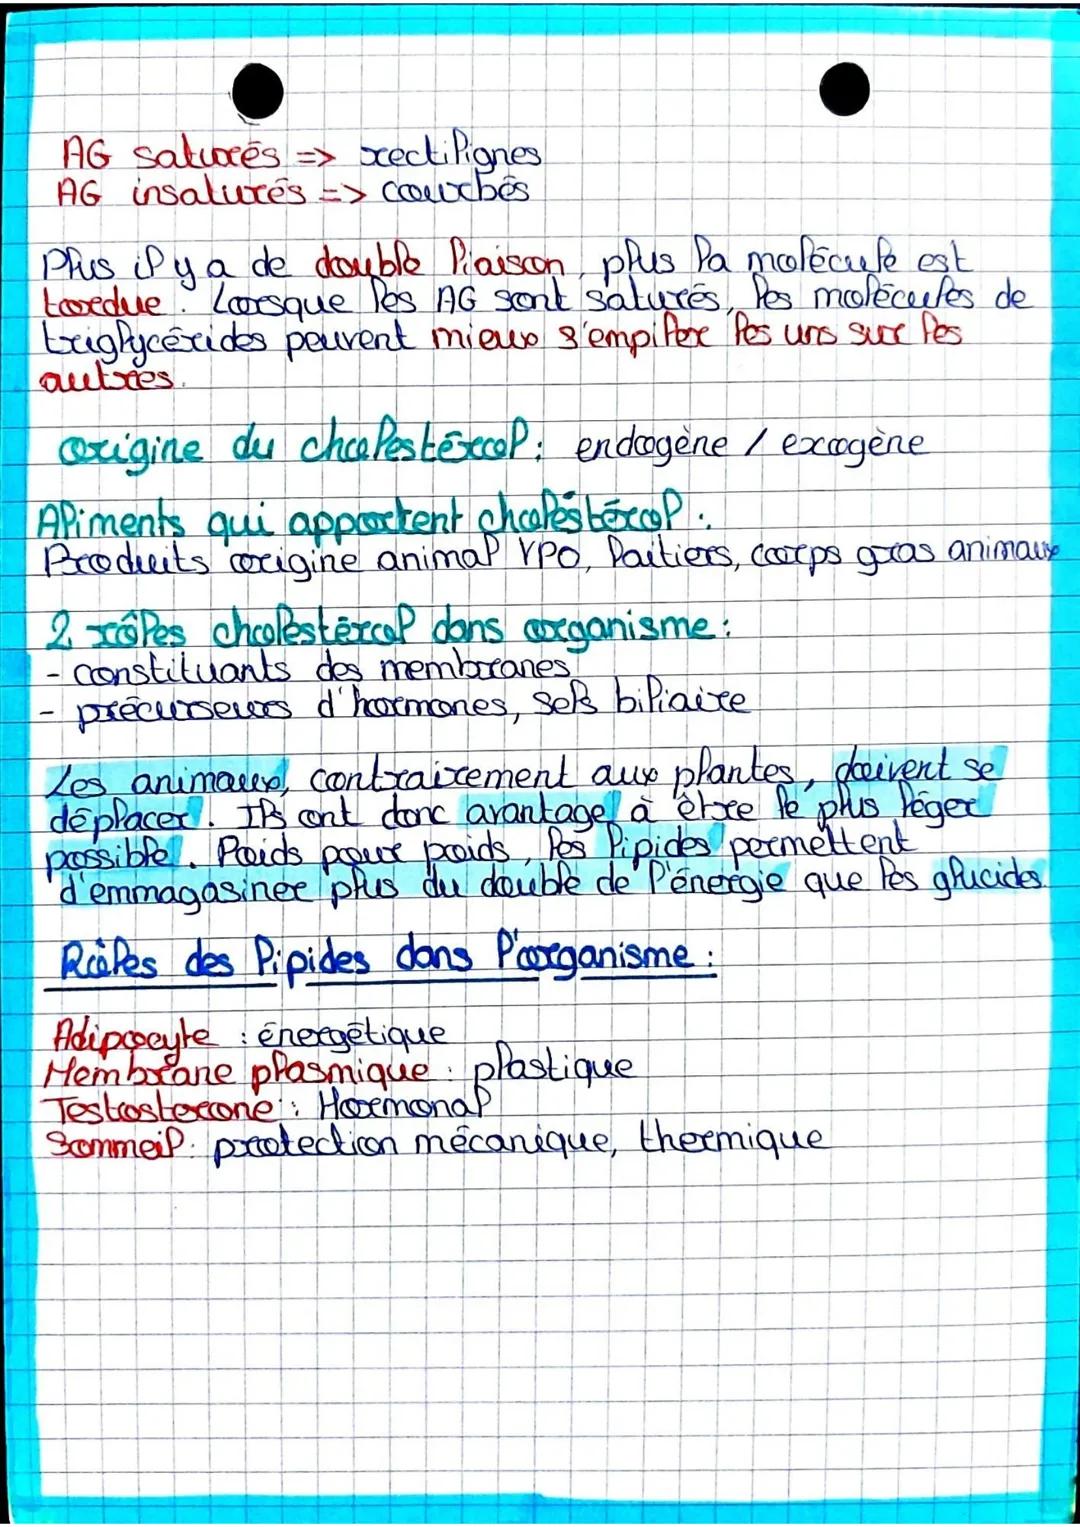 AG saturés => rectilignes
AG insaturés => courbés
Plus il y a de double liaison, plus la molécule est
tordue. Lorsque les AG sont saturés, les molécules de
triglycérides peuvent mieux s'empiler les uns sur les
autres.
origine du cholestérol : endogène / exogène
Aliments qui apportent choléstérol :
Produits origine animal VPO, laitiers, corps gras animaux
2 rôles cholestérol dans organisme :
- constituants des membranes
- précurseurs d'hormones, sels biliaire
Les animaux, contrairement aux plantes, doivent se
déplacer. Ils ont donc avantage à être le plus léger
possible. Poids pour poids, les lipides permettent
d'emmagasiner plus du double de l'énergie que les glucides.
Rôles des lipides dans l'organisme :
Adipocyte : énergétique
Membrane plasmique : plastique
Testosterone : Hormonal
Sommeil : protection mécanique, thermique